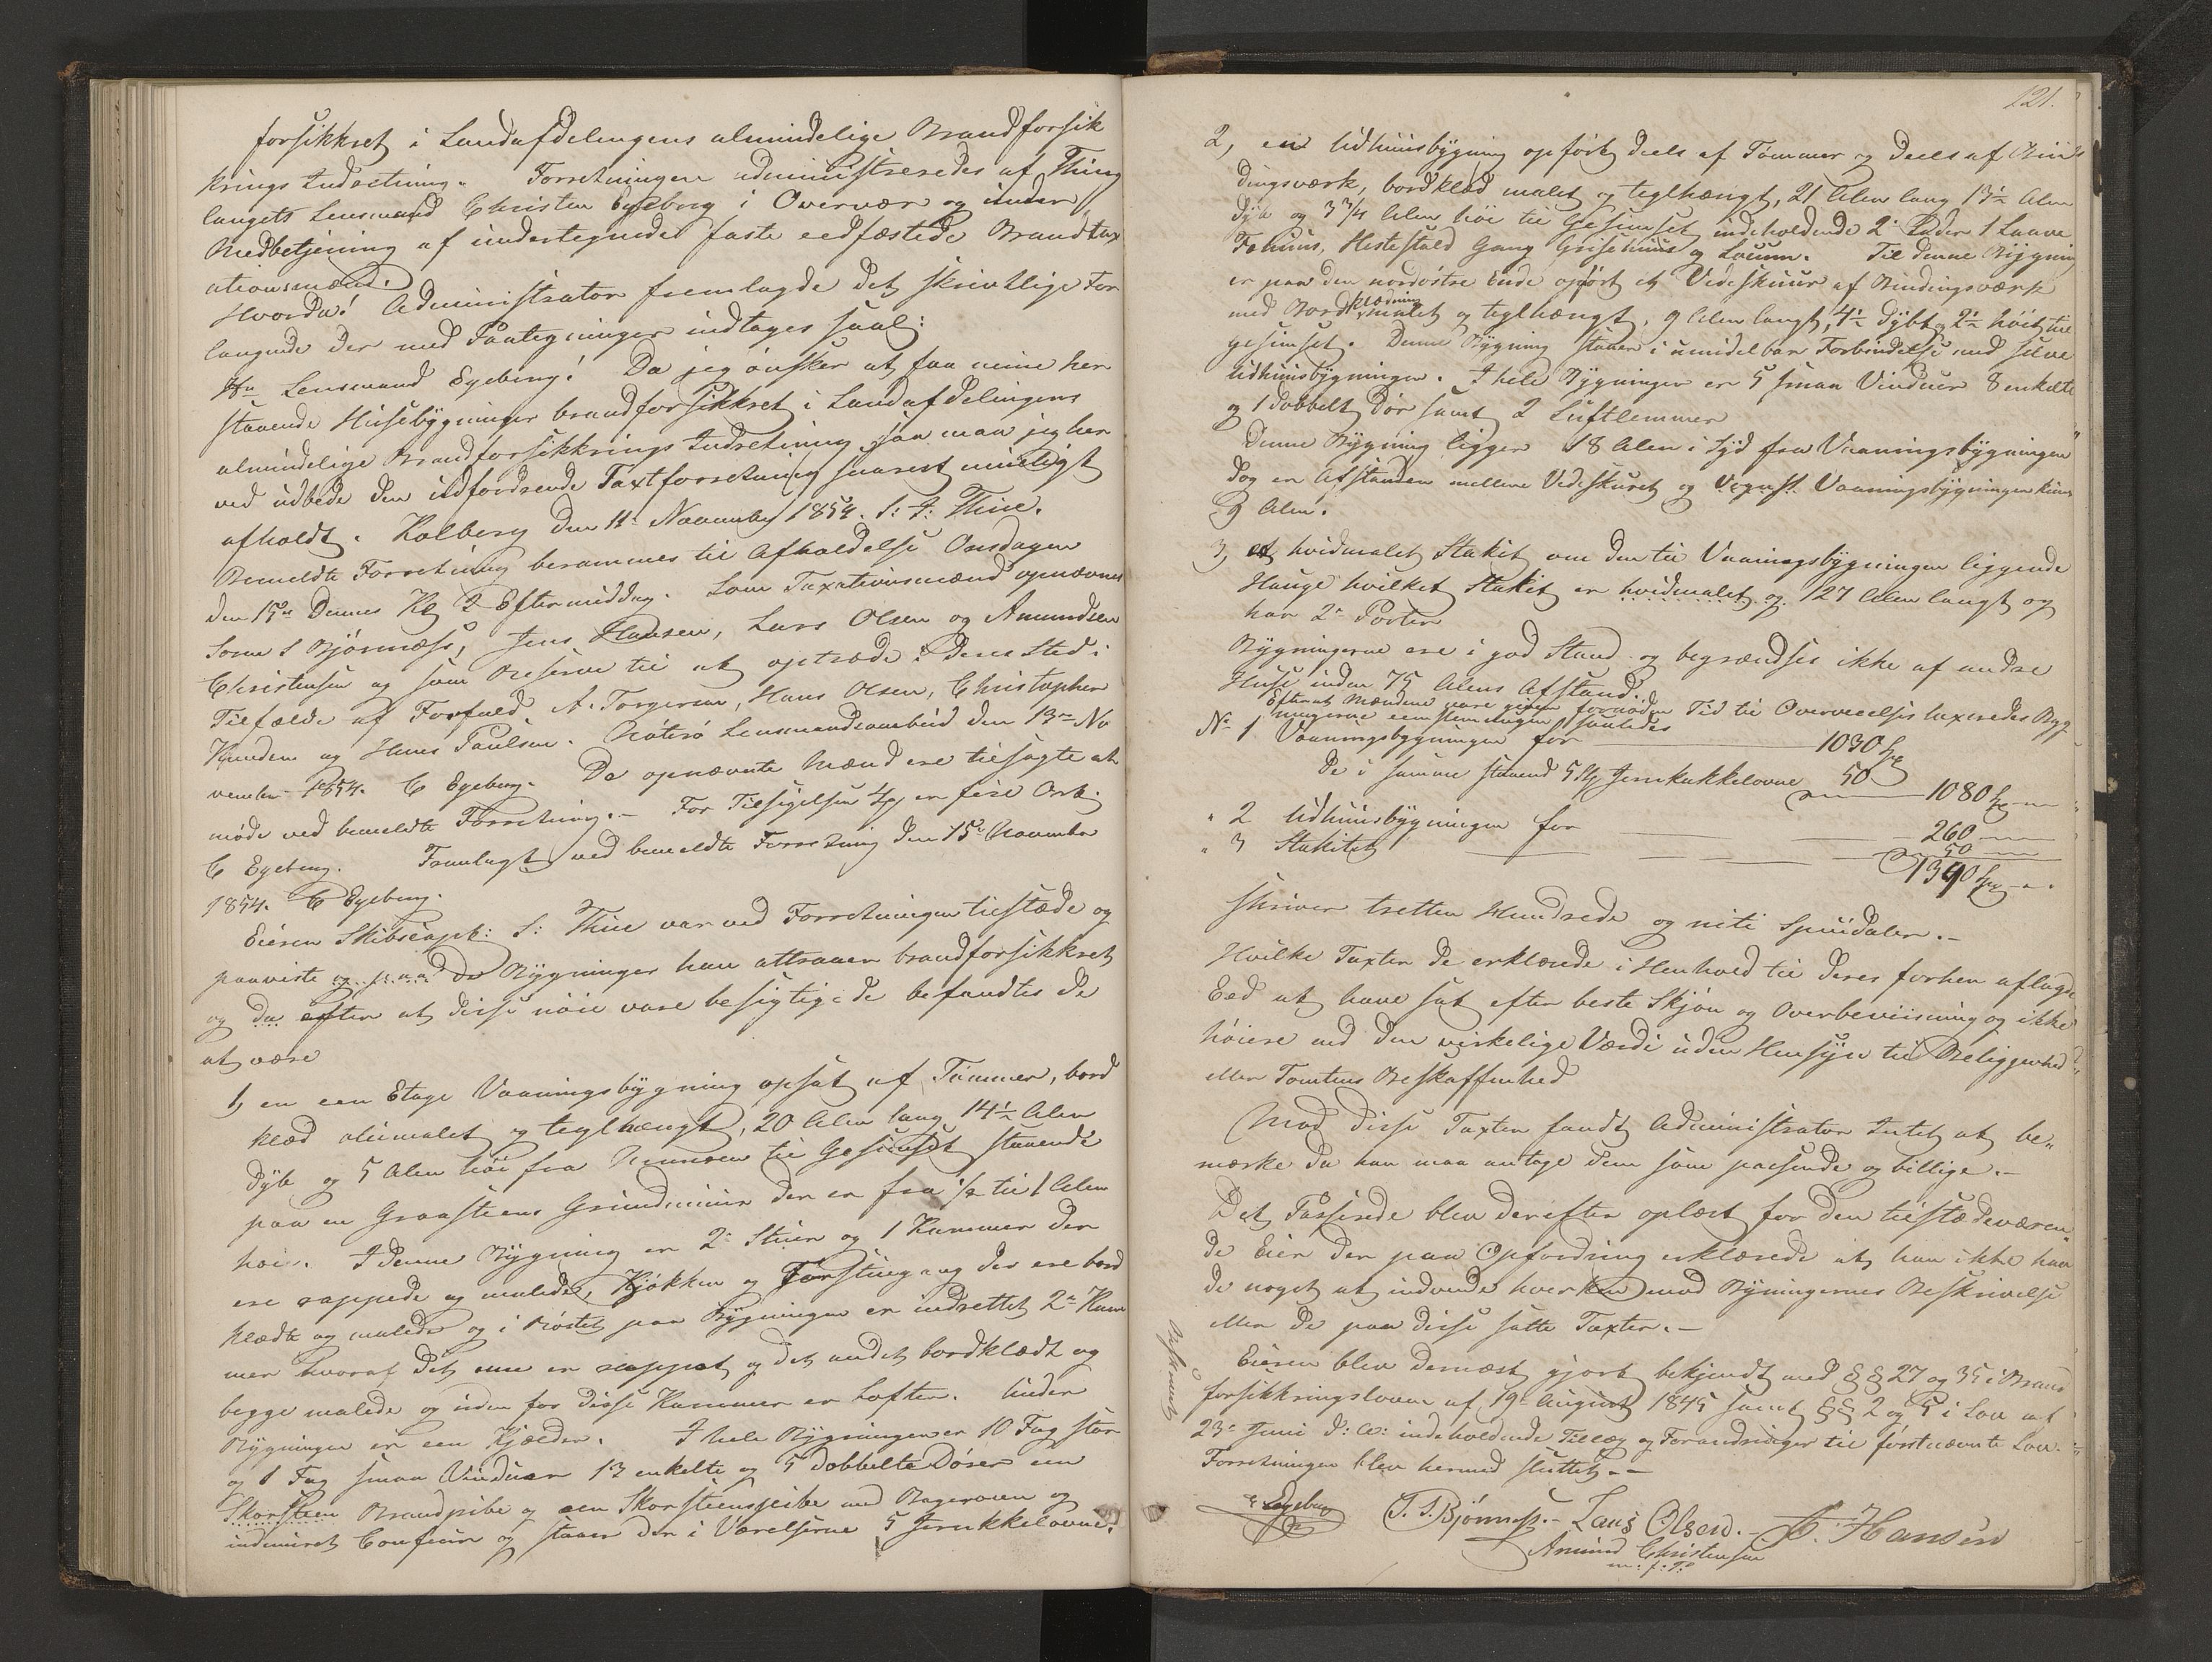 forsikkret i Landafdelingens almindelige Brandforsik
krings Indretning. Forretningen administreredes af Thing
laugets Lensmand Christen Egeberg i Overvær og under
Medbetjening af undertegnede faste eedfæstede Brandtax
ationsmænd.
Hvorda! Administrator fremlagde det skrivtlige For
langende der med Paategninger indtages saal:
Hr Lensmand Egeberg! Da jeg önsker at faa mine her
staaende Huusebygninger brandforsikkret i Landafdelingens
almindelige Brandforsikkrings Indretning saa maa jeg her
ved udbede den udfordrende Taxtforretning snarest mueligt
afholdt. Kolberg den 11te November 1854. S: J: Thue.
Bemeldte Forretning berammes til Afholdelse Onsdagen
den 15de Dennes Kl 2 Eftermiddag. Som Taxationsmænd opnævnes
Sören S Bjönnæss, Jens Hansen, Lars Olsen og Amundsen
Christensen og som Reserve til at optræde i deres Sted i
Tilfælde af Forfald A. Torgersen, Hans Olsen, Christopher
Knudsen og Hans Paulsen. Nöterö Lensmandsombud den 13de No
vember 1854. C Egeberg. De opnævnte Mænd ere tilsagte at
möde ved bemeldte Forretning. – For Tilsigelsen 4 er fire Ort.
C Egeberg. Fremlagt ved bemeldte Forretning den 15de November
1854. C Egeberg.
Eieren Skibscapt: S: Thue var ved Forretningen tilstæde og
paaviste og paa de Bygninger han attraaer brandforsikkret
og da efter at disse nöie vare besigtigede befandtes de
at være
1, en een Etage Vaaningsbygning opsat af Tömmer, bord
klæd oliemalet og teglhængt, 20 Alen lang 14½ Alen
dyb og 5 Alen höi fra Svillen til Gesimset staaende
paa en Graasteens Grundmuur der er fra ½ til 1 Alen
höi. I denne Bygning er 2de Stuer og 1 Kammer der
ere rappede og malede, Kjökken og Forstuegang der ere bord
klædte og malede og i Röstet paa Bygningen er indrettet 2de Kam
mer hvoraf det ene er rappet og det andet bordklædt og
begge malede og uden for disse Kammer er Lofter. Under
Bygningen er een Kjælder. I hele Bygningen er 10 Fag stor
og 1 Fag smaa Vinduer 13 enkelte og 5 dobbelte Dörer een
Skorsteen Brandpibe og een Skorsteenspibe med Bagerovn og
indmuret Comfeur og staaer der i Værelserne 5 Jernkkelovne.
121.
2, en Udhuusbygning opfört deels af Tömmer og deels af Bin
dingsværk, bordklæd malet og teglhængt, 21 Alen lang 13½ Alen
dyb og 3¾ Alen höi til Gesimset indeholdende 2de Lader 1 Laave
Fæhuus, Hestestald Gang Grisehuus og Locum. Til denne Bygning
er paa den nordöstre Ende opfört et Vedeskuur af Bindingsværk
med Bordklædning malet og teglhængt, 9 Alen langt, 4½ dybt og 2½ höit til
gesimset. Denne Bygning staaer i umidelbar Forbindelse med selve
Udhuusbygningen. I hele Bygningen er 5 smaa Vinduer 8 enkelte
og 1 dobbelt Dör samt 2 Luftlemmer
Denne Bygning ligger 18 Alen i Syd fra Vaaningsbygningen
dog er Afstanden mellem Vedeskuret og Vaaningsbygningen kuns
9 Alen.
3, et hvidmalet Stakit om den til Vaaningsbygningen liggende
Hauge hvilket Stakit er hvidmalet og 127 Alen langt og
har 2de Porter
Bygningerne ere i god Stand og begrændses ikke af andre
Huse inden 75 Alens Afstand.
Efterat Mændene vare given fornöden Tid til Overveielse taxeredes Byg
ningerne eenstemmigen saaledes
No 1 Vaaningsbygningen for 1030 Spd
de i samme staaende 5 Stk Jernkakkelovne 50
1080 Spd
" 2 Udhuusbygningen for 260
" 3 Stakitet 50
1390 Spd
skriver tretten Hundrede og niti Speciedaler. –
Hvilke Taxter de erklærede i Henhold til deres forhen aflagte
Eed at have sat efter beste Skjön og Overbeviisning og ikke
höiere end den virkelige Værdi uden Hensyn til Beliggenhed
eller Tomtens Beskaffenhed
Mod disse Taxter fandt Administrator Intet at be„
mærke da han maa antage dem som passende og billige. –
Det Passerede blev derefter oplæst for den tilstædeværen„
de Eier der paa Opfordring erklærede at han ikke hav
de noget at indvende hverken mod Bygningernes Beskrivelse
eller de paa disse satte Taxter. –
Eieren blev dernæst gjort bekjendt med §§ 27 og 35 i Brand
forsikkringsloven af 19 August 1845 samt §§ 2 og 5 i Lov af
23de Juni d: A: indeholdende Tillæg og Forandringer til förstnævnte Lov.
Forretningen blev hermed sluttet. –
C Egeberg S. S. Bjönness. – Lars Olsen. – J. Hansen
Amund Christensen
m. f. P.